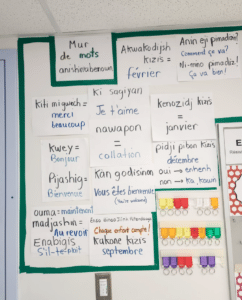 Mur
de mots
anishinabemowin
Akwakodjish
kizis =
février
Anin eji pimadizi?
Comment ça va?
Ni-mino pimadiz!
Ça va bien!
Kitci migwech =
merci
beaucoup
Ki sagiyan
Je t'aime
nawapon
=
collation
Kenozidj kizis
=
janvier
Kwey =
Bonjour
Pijashig =
Bienvenue
Kan godisinan
Vous êtes bienvenue
pidji pibon kizis
décembre
oui →
non →
ouma = maintenant
madjashin =
Au revoir
Enabigis
S'il-te-plait
Chaque enfant compte!
Kakone kizis
septembre